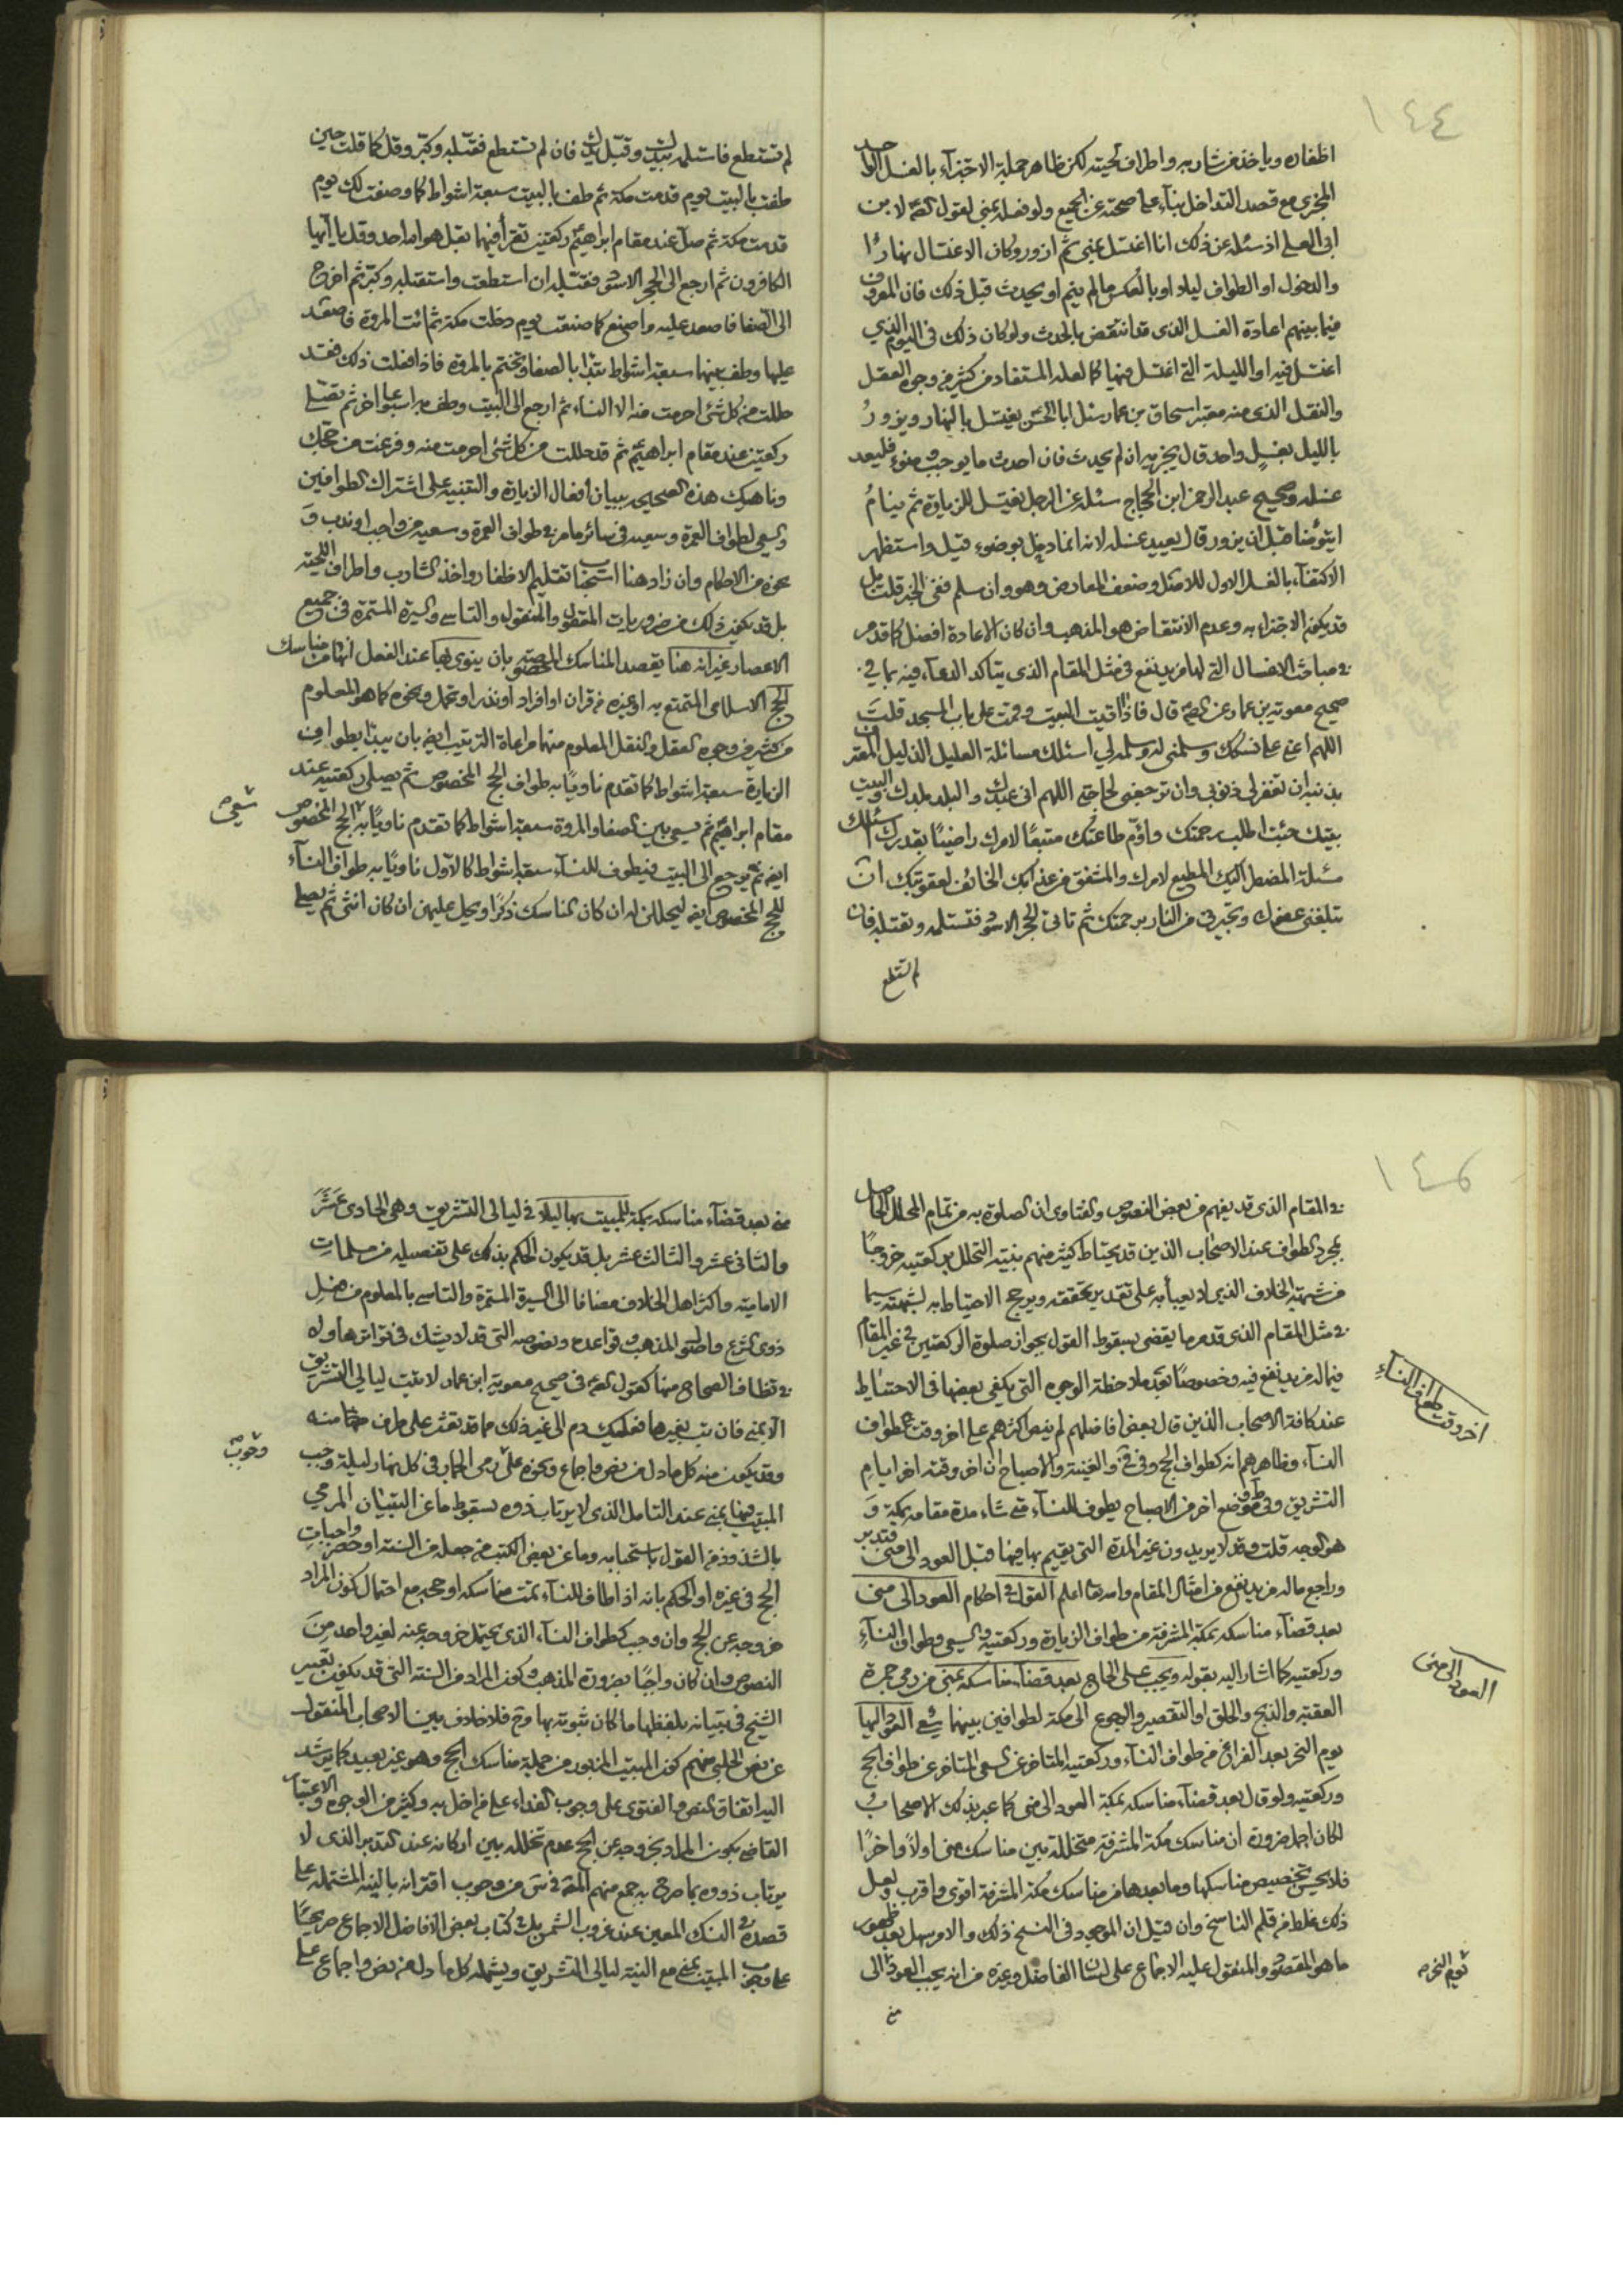 ١٤٤
اظفاره وياخذ من شاربه واطراف لحيته لكن ظاهر جملة الاجتزآء بالغسل الواحد
المجزى مع قصد التداخل بنآء على صحته عن الجميع ولو فعله بمنى لقول لابن
ابى العلى اذ سئله عن ذلك انا اغتسل بمنى ثم ازور وكان الاغتسال نهارا
والدخول او الطواف ليلا او بالعكس مالم ينم او يحدث قبل ذلك فان المعروف
فيما بينهم اعادة الغسل الذى قد انتقض بالحدث ولو كان ذلك فى اليوم الذي
اغتسل فيه او الليلة التى اغتسل فيها كما لعله المستفاد من كثير من وجوه العقل
والنقل الذى منه معتبر اسحاق بن عمار سئل ابا الحسن يغتسل بالنهار ويزور
بالليل بغسل واحد قال يجزيه ان لم يحدث فان احدث ما يوجب وضوء فليعد
غسله وصحيح عبد الرحمن ابن الحجاج سئله عن الرجل يغتسل للزيارة ثم ينام
ايتوضا قبل ان يزور قال يعيد غسله لانه انما دخل بوضوء قيل واستظهر
الاكتفآء بالغسل الاول للاصل وضعف المعارض وهو وان سلم ففى الخبر قلت بل
قد يكون الاجتزاء به وعدم الانتقاض هو المذهب وان كان الاعادة افضل كما قدم
فى مباحث الاغسال التى لها مزيد نفع فى مثل المقام الذى يتاكد الدعآء فيه بما في
صحيح معوية بن عمار عن قال فاذا اتيت البيت وقمت على باب المسجد قلت
اللهم اعنى على نسكك وسلمنى له وسلمه لي اسئلك مسئلة العليل الذليل المعترف
بذنبه ان تغفر لى ذنوبى وان ترجعنى لحاجتى اللهم انى عبدك والبلد بلدك والبيت
بيتك جئت اطلب رحمتك واؤم طاعتك متبعا لامرك راضيا بقدرك اسئلك
مسئلة المضطر اليك المطيع لامرك والمشفق من عذابك الخائف لعقوبتك ان
تبلغنى عفوك وتجيرنى من النار برحمتك ثم تاتى الحجر الاسود فتستلمه وتقبله فان
لم تستطع
لم تستطع فاستلمه بيدك وقبل يدك فان لم تستطع فقبله وكبر وقل كما قلت حين
طفت بالبيت يوم قدمت مكة ثم طف بالبيت سبعة اشواط كما وصفت لك يوم
قدمت مكة ثم صل عند مقام ابراهيم ركعتين تقرأ فيهما بقل هو الله احد وقل يا ايها
الكافرون ثم ارجع الى الحجر الاسود فقبله ان استطعت واستقبله وكبر ثم اخرج
الى الصفا فاصعد عليه واصنع كما صنعت يوم دخلت مكة ثم ائت المروة فاصعد
عليها وطف بينهما سبعة اشواط تبدأ بالصفا وتختم بالمروة فاذا فعلت ذلك فقد
حللت من كل شئ احرمت منه الا النساء ثم ارجع الى البيت وطف به اسبوعا اخر ثم تصلى
ركعتين عند مقام ابراهيم ثم قد حللت من كل شئ احرمت منه وفرغت من حجك
وناهيك هذه الصحيح ببيان افعال الزيارة والتنبيه على اشتراك الطوافين
والسعى لطواف العمرة وسعيه فى سائر ما مر فى طواف العمرة وسعيه من واجب او ندب و
نحوه من الاحكام وان زاد هنا استحبابا تقليم الاظفار واخذ الشارب واطراف اللحية
بل قد يكون ذلك من ضروريات المعقول والمنقول والتاسى والسيرة المستمرة فى جميع
الاعصار غير انه هنا يقصد المناسك المخصوصة بان ينوى بها عند الفعل انها من مناسك
الحج الاسلامى المتمتع به او غيره من قران او افراد او نذر او تحمل ونحوه كما هو المعلوم
من كثير من وجوه العقل والنقل المعلوم منهما مراعاة الترتيب ايضا بان يبدأ بطواف
الزيارة سبعة اشواط كما تقدم ناويا به طواف الحج المخصوص ثم يصلى ركعتيه عند
مقام ابراهيم ثم يسعى بين الصفا والمروة سبعة اشواط كما تقدم ناويا به الحج المخصوص
سعى
ايضا ثم يرجع الى البيت فيطوف للنسآء سبعة اشواط كالاول ناويا به طواف النسآء
للحج المخصوص ايضا ليحللن له ان كان الناسك ذكرا ويحل عليهن ان كان انثى ثم يصلى
فى المقام الذى قد يفهم من بعض النصوص والفتاوى ان الصلوة به من تمام المحلل الحاصل
بمجرد الطواف عند الاصحاب الذين قد يحتاط كثير منهم بنية التحلل بركعتيه خروجا
من شبهة الخلاف الذى لا يعبأ به على تقدير تحققه ويرجح الاحتياط به لشبهته سيما
فى مثل المقام الذى قدم ما يقضى بسقوط القول بجواز صلوة الركعتين فى غير المقام
فيما له مزيد نفع فيه وخصوصا بعد ملاحظة الوجوه التى يكفى بعضها فى الاحتياط
اخر وقت طواف النسآء
عند كافة الاصحاب الذين قال بعض افاضلهم لم ينص اكثرهم على اخر وقت طواف
النسآء وظاهرهم انه كطواف الحج وفى والغنية والاصباح ان اخر وقته اخر ايام
التشريق وفى موضع اخر من الاصباح يطوف للنسآء متى شاء مدة مقامه بمكة و
هو الوجه قلت وقد لا يريدون غير المدة التى يقيم بها فيها قبل العود الى منى فتدبر
وراجع ماله مزيد نفع من امثال المقام والله اعلم القول فى احكام العود الى منى
العود الى منى
بعد قضآء مناسكه بمكة المشرفة من طواف الزيارة وركعتيه والسعى وطواف النسآء
وركعتيه كما اشار اليه بقوله ويجب على الحاج بعد قضآء مناسكه بمنى من رمى جمرة
العقبة والذبح والحلق او التقصير والرجوع الى مكة لطوافين بينهما سعى العود اليها
يوم النحر بعد الفراغ من طواف النسآء وركعتيه المتاخر عن السعى المتاخر عن طواف الحج
وركعتيه ولو قال بعد قضآء مناسكه بمكة العود الى منى كما عبر بذلك الاصحاب
لكان اجمل ضرورة ان مناسك مكة المشرفة متخللة بين مناسك منى اولا واخرا
فلا يحسن تخصيص مناسكها وما بعدها من مناسك مكة المشرفة اقوى واقرب ولعل
ذلك غلط من قلم الناسخ وان قيل ان الموجود فى النسخ ذلك والامر سهل بعد ظهور
ما هو المقصود والمنقول عليه الاجماع على لسان الفاضل وغيره من انه يجب العود الى
يوم النحر
منى
منى بعد قضآء مناسكه بمكة للمبيت بها ليلا فى ليالى التشريق وهى الحادى عشر
والثانى عشر والثالث عشر بل قد يكون الحكم بذلك على تفصيله من مسلمات
الامامية واكثر اهل الخلاف مضافا الى السيرة المستمرة والتاسى بالمعلوم من فعل
ذوى الشرع واصول المذهب وقواعده ونصوصه التى قد لا يشك فى تواترها وله
الصحاح منها كقول فى صحيح معوية ابن عمار لا تبت ليالى التشريق
الا بمنى فان بت بغيرها فعليك دم الى غير ذلك مما قد تعثر على طرف منه
وقد يكون منه كل ما دل من نص واجماع ونحوه على رمى الجمار فى كل نهار ليلة وجب
وجوب
المبيت فيها بمنى عند التامل الذى لا يرتاب ذوه بسقوط ما عن التبيان المرمى
بالشذوذ من القول باستحبابه وما عن بعض الكتب من جعله من السنة او حصر واجبات
الحج فى غيره او الحكم بانه اذا طاف للنسآء تمت مناسكه او حجه مع احتمال كون المراد
خروجه عن الحج وان وجب كطواف النسآء الذى يحتمل خروجه عنه لغير واحد من
النصوص وان كان واجبا بضرورة المذهب وكون المراد من السنة التى قد يكون تعبير
الشيخ فى تبيانه بلفظها ما كان ثبوته بها وح فلا خلاف بين الاصحاب المنقول
عن نص الحلبى منهم كون المبيت المزبور من جملة مناسك الحج وهو غير بعيد كما يرشد
اليه اتفاق النص والفتوى على وجوب الفداء على من اخل به وكثير من الوجوه والاعتبار
القاضى بكون المراد بخروجه عن الحج عدم تخلله بين اركانه عند التدبر الذى لا
يرتاب ذووه بما صرح به جمع منهم من وجوب اقترانه بالنية المشتملة على
قصده النسك المعين عند غروب الشمس بل فى كتاب بعض الافاضل الاجماع صريحا
على وجوب المبيت بمنى مع النية ليالى التشريق ويشمله كل ما دل من نص واجماع على